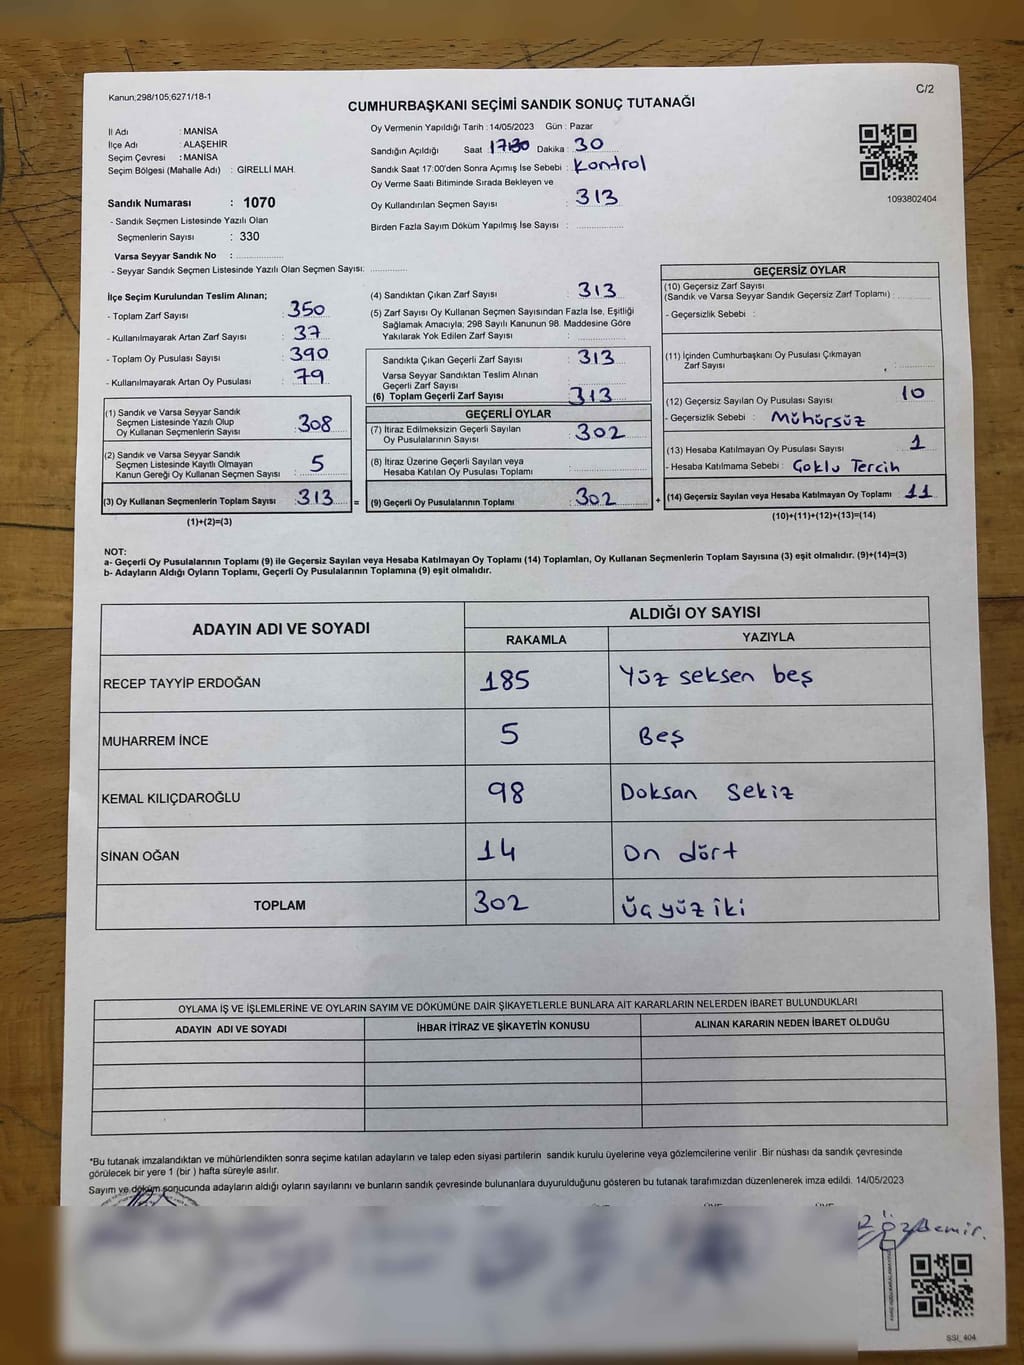 Kanun;298/105,6271/18-1
C/2
CUMHURBAŞKANI SEÇİMİ SANDIK SONUÇ TUTANAĞI
İl Adı : MANİSA
İlçe Adı : ALAŞEHİR
Seçim Çevresi : MANİSA
Seçim Bölgesi (Mahalle Adı) : GİRELLİ MAH.
Sandık Numarası : 1070
- Sandık Seçmen Listesinde Yazılı Olan
Seçmenlerin Sayısı : 330
Varsa Seyyar Sandık No :
- Seyyar Sandık Seçmen Listesinde Yazılı Olan Seçmen Sayısı:
Oy Vermenin Yapıldığı Tarih :14/05/2023 Gün : Pazar
Sandığın Açıldığı Saat : Dakika : 30
Sandık Saat 17:00'den Sonra Açımış İse Sebebi : Kontrol
Oy Verme Saati Bitiminde Sırada Bekleyen ve
Oy Kullandırılan Seçmen Sayısı : 313
Birden Fazla Sayım Döküm Yapılmış İse Sayısı :
1093802404
İlçe Seçim Kurulundan Teslim Alınan;
- Toplam Zarf Sayısı : 350
- Kullanılmayarak Artan Zarf Sayısı : 37
- Toplam Oy Pusulası Sayısı : 390
- Kullanılmayarak Artan Oy Pusulası : 79
(1) Sandık ve Varsa Seyyar Sandık
Seçmen Listesinde Yazılı Olup
Oy Kullanan Seçmenlerin Sayısı : 308
(2) Sandık ve Varsa Seyyar Sandık
Seçmen Listesinde Kayıtlı Olmayan
Kanun Gereği Oy Kullanan Seçmen Sayısı : 5
(3) Oy Kullanan Seçmenlerin Toplam Sayısı : 313 =
(1)+(2)=(3)
(4) Sandıktan Çıkan Zarf Sayısı : 313
(5) Zarf Sayısı Oy Kullanan Seçmen Sayısından Fazla İse, Eşitliği
Sağlamak Amacıyla; 298 Sayılı Kanunun 98. Maddesine Göre
Yakılarak Yok Edilen Zarf Sayısı :
Sandıkta Çıkan Geçerli Zarf Sayısı : 313
Varsa Seyyar Sandıktan Teslim Alınan
Geçerli Zarf Sayısı :
(6) Toplam Geçerli Zarf Sayısı : 313
GEÇERLİ OYLAR
(7) İtiraz Edilmeksizin Geçerli Sayılan
Oy Pusulalarının Sayısı : 302
(8) İtiraz Üzerine Geçerli Sayılan veya
Hesaba Katılan Oy Pusulası Toplamı :
(9) Geçerli Oy Pusulalarının Toplamı : 302 +
GEÇERSİZ OYLAR
(10) Geçersiz Zarf Sayısı
(Sandık ve Varsa Seyyar Sandık Geçersiz Zarf Toplamı) :
- Geçersizlik Sebebi :
(11) İçinden Cumhurbaşkanı Oy Pusulası Çıkmayan
Zarf Sayısı :
(12) Geçersiz Sayılan Oy Pusulası Sayısı : 10
- Geçersizlik Sebebi : Mühürsüz
(13) Hesaba Katılmayan Oy Pusulası Sayısı : 1
- Hesaba Katılmama Sebebi : Çoklu Tercih
(14) Geçersiz Sayılan veya Hesaba Katılmayan Oy Toplamı : 11
(10)+(11)+(12)+(13)=(14)
NOT:
a- Geçerli Oy Pusulalarının Toplamı (9) ile Geçersiz Sayılan veya Hesaba Katılmayan Oy Toplamı (14) Toplamları, Oy Kullanan Seçmenlerin Toplam Sayısına (3) eşit olmalıdır. (9)+(14)=(3)
b- Adayların Aldığı Oyların Toplamı, Geçerli Oy Pusulalarının Toplamına (9) eşit olmalıdır.
ADAYIN ADI VE SOYADI
ALDIĞI OY SAYISI
RAKAMLA YAZIYLA
RECEP TAYYİP ERDOĞAN 185 Yüz seksen beş
MUHARREM İNCE 5 Beş
KEMAL KILIÇDAROĞLU 98 Doksan Sekiz
SİNAN OĞAN 14 On dört
TOPLAM 302 Üçyüz iki
OYLAMA İŞ VE İŞLEMLERİNE VE OYLARIN SAYIM VE DÖKÜMÜNE DAİR ŞİKAYETLERLE BUNLARA AİT KARARLARIN NELERDEN İBARET BULUNDUKLARI
ADAYIN ADI VE SOYADI İHBAR İTİRAZ VE ŞİKAYETİN KONUSU ALINAN KARARIN NEDEN İBARET OLDUĞU
*Bu tutanak imzalandıktan ve mühürlendikten sonra seçime katılan adayların ve talep eden siyasi partilerin sandık kurulu üyelerine veya gözlemcilerine verilir .Bir nüshası da sandık çevresinde
görülecek bir yere 1 (bir ) hafta süreyle asılır.
Sayım ve döküm sonucunda adayların aldığı oyların sayılarını ve bunların sandık çevresinde bulunanlara duyurulduğunu gösteren bu tutanak tarafımızdan düzenlenerek imza edildi. 14/05/2023
SSI_404